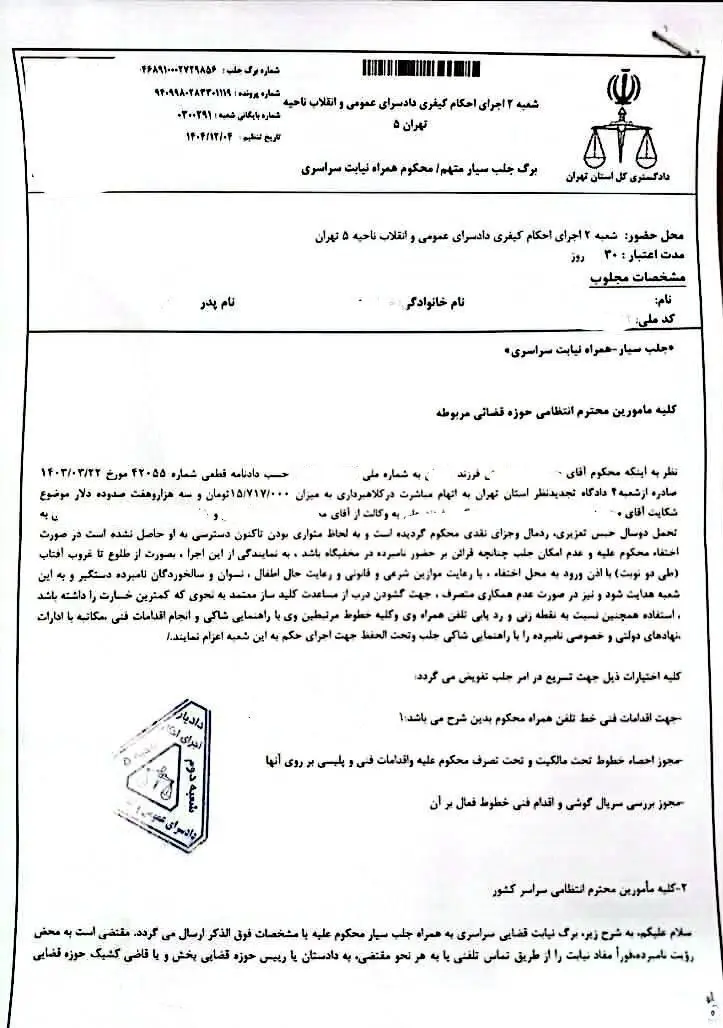 شماره برگ جلب : ۰۴۶۸۹۱۰۰۰۲۷۲۹۸۵۶
شماره پرونده : ۹۴۰۹۹۸۰۲۸۳۳۰۱۱۱۹
شماره بایگانی شعبه : ۰۳۰۰۲۹۱
تاریخ تنظیم : ۱۴۰۴/۱۲/۰۴
شعبه ۲ اجرای احکام کیفری دادسرای عمومی و انقلاب ناحیه
۵ تهران
برگ جلب سیار متهم/ محکوم همراه نیابت سراسری
دادگستری کل استان تهران
محل حضور: شعبه ۲ اجرای احکام کیفری دادسرای عمومی و انقلاب ناحیه ۵ تهران
مدت اعتبار : ۳۰ روز
مشخصات مجلوب
نام: نام خانوادگی نام پدر
کد ملی:
*جلب سیار-همراه نیابت سراسری*
کلیه مامورین محترم انتظامی حوزه قضائی مربوطه
نظر به اینکه محکوم آقای فرزند به شماره ملی حسب دادنامه قطعی شماره ۴۲۰۵۵ مورخ ۱۴۰۳/۰۳/۲۲
صادره ازشعبه۴ دادگاه تجدیدنظر استان تهران به اتهام مباشرت درکلاهبرداری به میزان ۱۵/۷۱۷/۰۰۰تومان و سه هزاروهفت صدوده دلار موضوع
شکایت آقای به وکالت از آقای و به
تحمل دوسال حبس تعزیری، ردمال وجزای نقدی محکوم گردیده است و به لحاظ متواری بودن تاکنون دسترسی به او حاصل نشده است در صورت
اختفاء محکوم علیه و عدم امکان جلب چنانچه قرائن بر حضور نامبرده در مخفیگاه باشد ، به نمایندگی از این اجرا ، بصورت از طلوع تا غروب آفتاب
(طی دو نوبت) با اذن ورود به محل اختفاء ، با رعایت موازین شرعی و قانونی و رعایت حال اطفال ، نسوان و سالخوردگان نامبرده دستگیر و به این
شعبه هدایت شود و نیز در صورت عدم همکاری متصرف ، جهت گشودن درب از مساعدت کلید ساز معتمد به نحوی که کمترین خسارت را داشته باشد
، استفاده همچنین نسبت به نقطه زنی و رد یابی تلفن همراه وی وکلیه خطوط مرتبطین وی با راهنمایی شاکی و انجام اقدامات فنی ،مکاتبه با ادارات
،نهادهای دولتی و خصوصی نامبرده را با راهنمایی شاکی جلب وتحت الحفظ جهت اجرای حکم به این شعبه اعزام نمایند./
کلیه اختیارات ذیل جهت تسریع در امر جلب تفویض می گردد:
-جهت اقدامات فنی خط تلفن همراه محکوم بدین شرح می باشد:۱
-مجوز احصاء خطوط تحت مالکیت و تحت تصرف محکوم علیه واقدامات فنی و پلیسی بر روی آنها
-مجوز بررسی سریال گوشی و اقدام فنی خطوط فعال بر آن
دادیار
اجرای احکام
شعبه دوم
دادسرای عمومی
۲-کلیه مأمورین محترم انتظامی سراسر کشور
سلام علیکم، به شرح زیر، برگ نیابت قضایی سراسری به همراه جلب سیار محکوم علیه با مشخصات فوق الذکر ارسال می گردد. مقتضی است به محض
رؤیت نامبرده،فوراً مفاد نیابت را از طریق تماس تلفنی یا به هر نحو مقتضی، به دادستان یا رییس حوزه قضایی بخش و یا قاضی کشیک حوزه قضایی